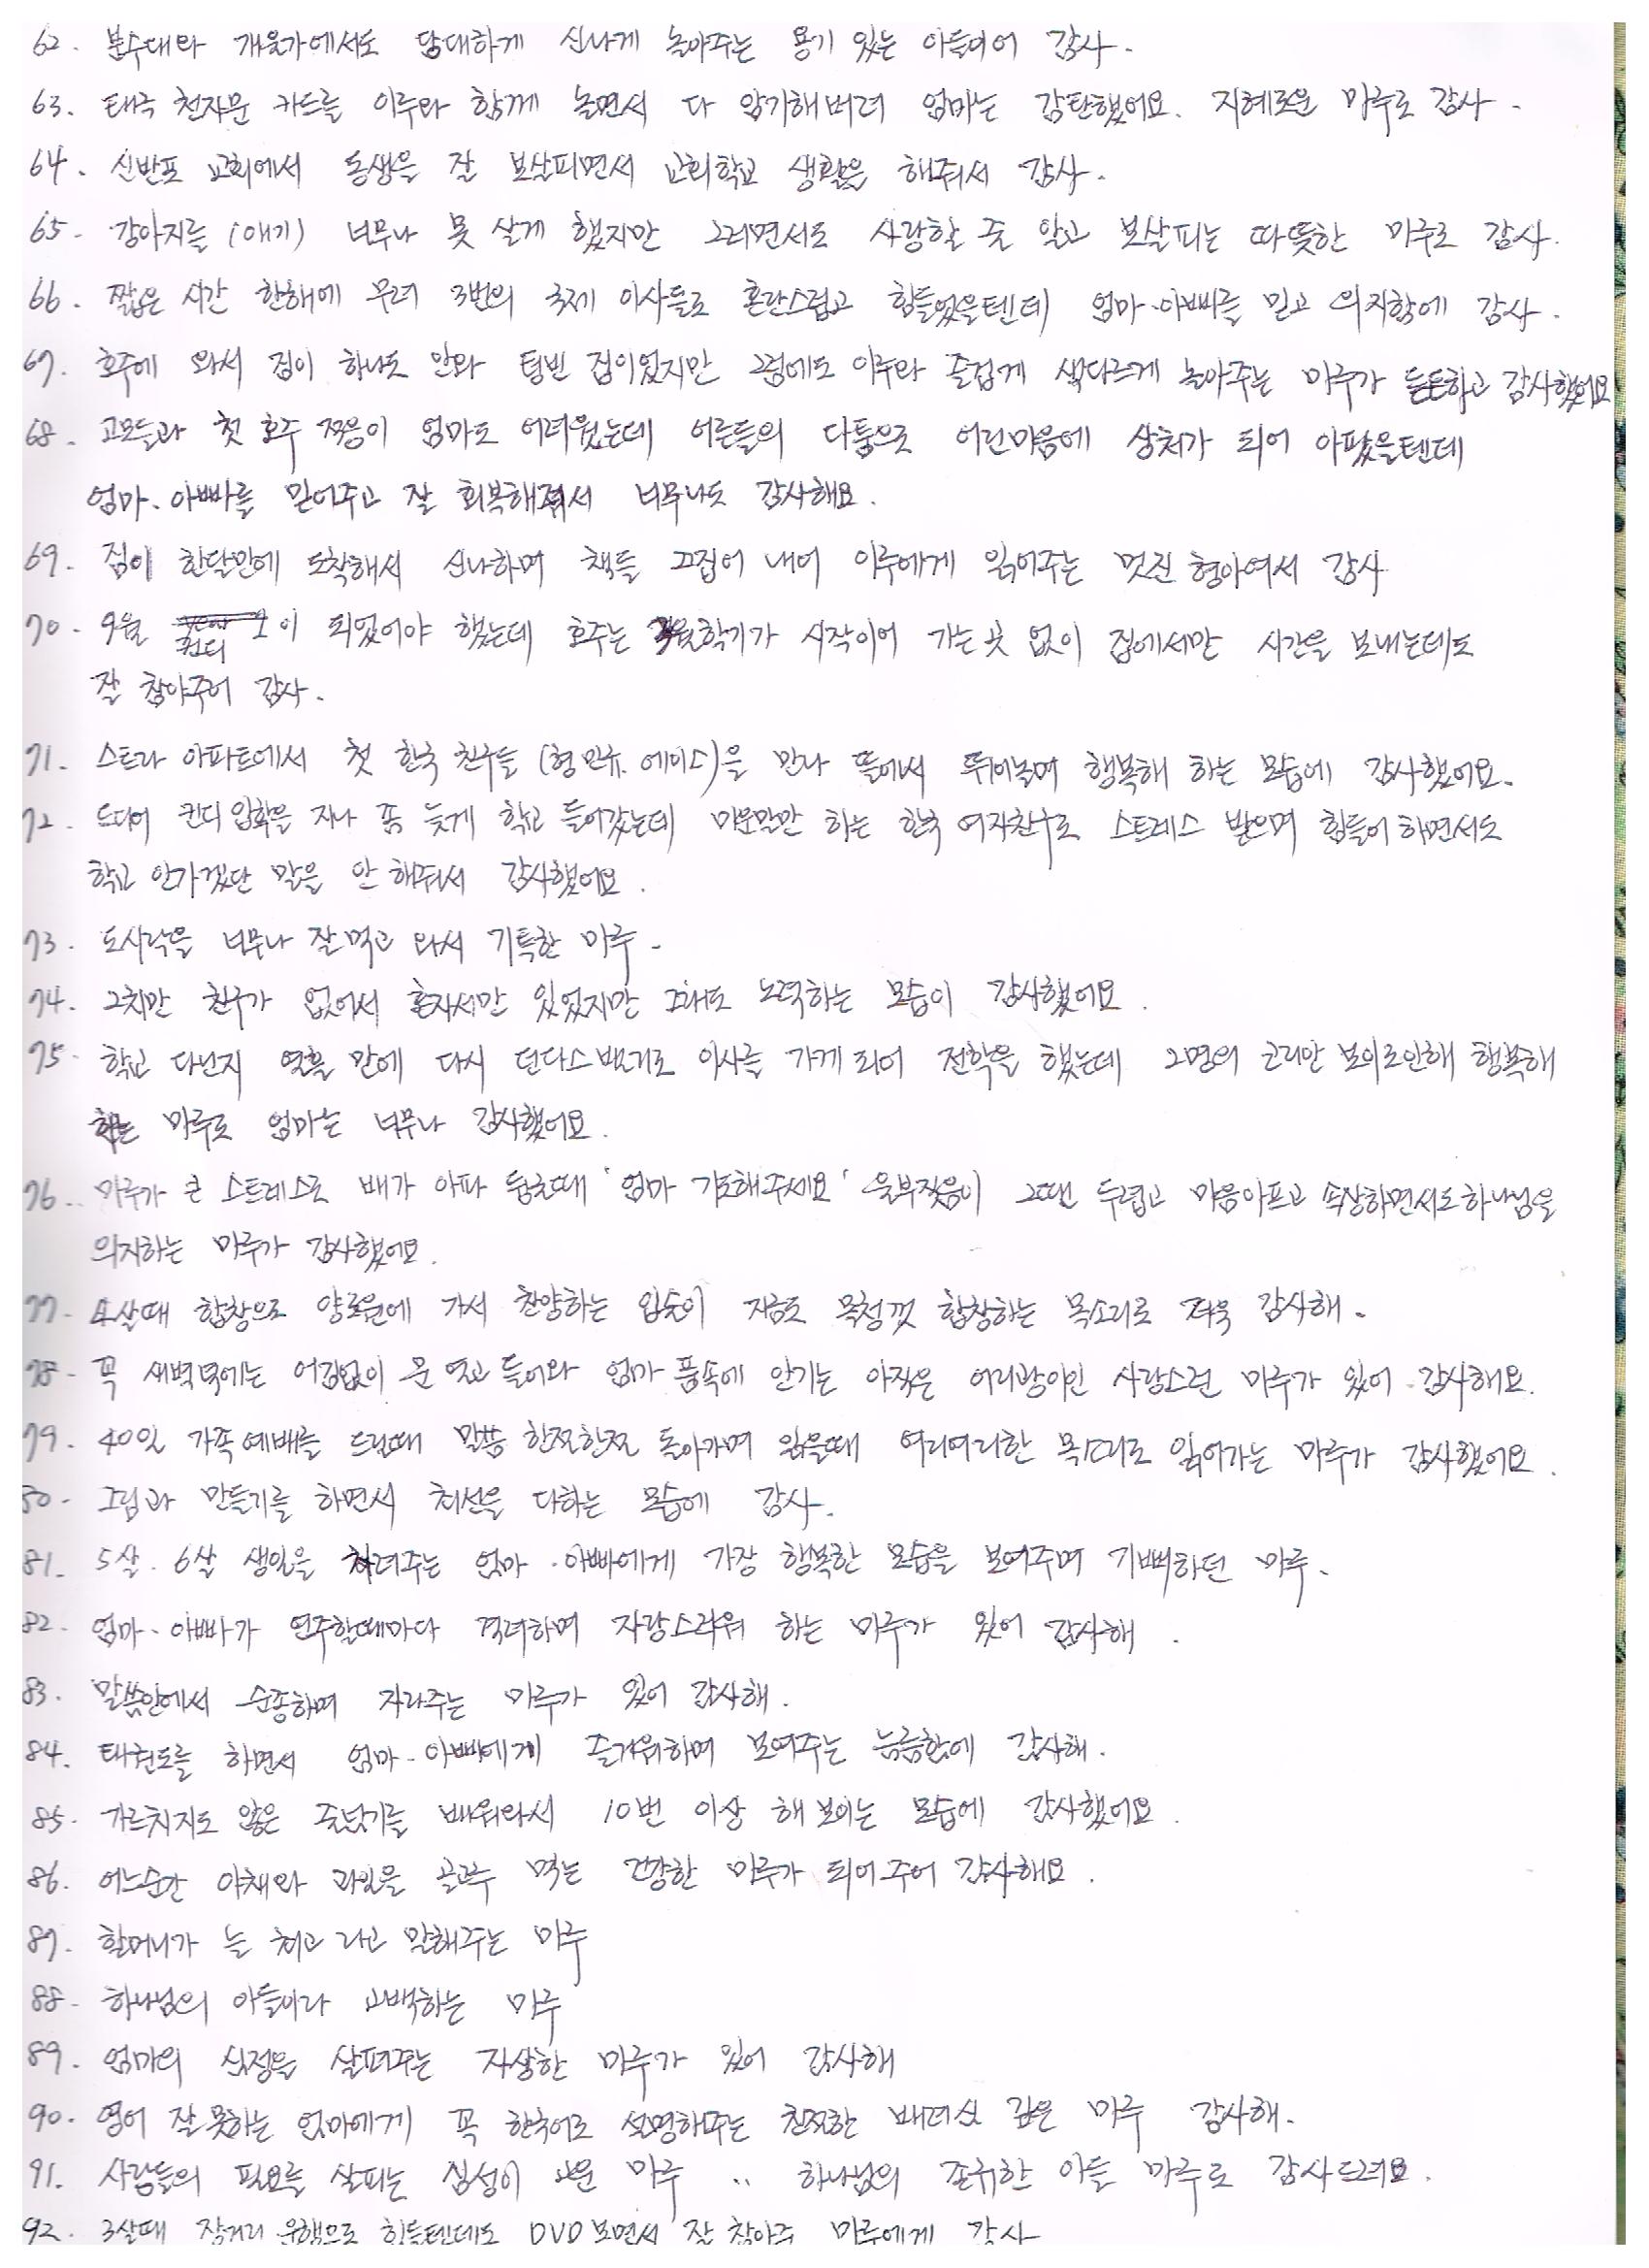 62. 분수대와 개울가에서도 담대하게 신나게 놀아주는 용기 있는 아들이어 감사.
63. 태극 천자문 카드를 이루와 함께 놀면서 다 암기해버려 엄마는 감탄했어요. 지혜로운 마루로 감사.
64. 신반포 교회에서 동생을 잘 보살피면서 교회학교 생활을 해줘서 감사.
65. 강아지를 (애기) 너무나 못 살게 했지만 그러면서도 사랑할 줄 알고 보살피는 따뜻한 마루로 감사.
66. 짧은 시간 한해에 무려 3번의 국제 이사들로 혼란스럽고 힘들었을텐데 엄마.아빠를 믿고 의지함에 감사.
67. 호주에 와서 짐이 하나도 안와 텅빈 집이었지만 그럼에도 이루와 즐겁게 색다르게 놀아주는 마루가 든든하고 감사했어요
68. 고모들과 첫 호주 적응이 엄마도 어려웠는데 어른들의 다툼으로 어린마음에 상처가 되어 아팠을텐데
엄마.아빠를 믿어주고 잘 회복해줘서 너무나도 감사해요.
69. 짐이 한달만에 도착해서 신나하며 책들 끄집어 내어 이루에게 읽어주는 멋진 형아여서 감사
70. 9월 킨디이 되었어야 했는데 호주는 학기가 시작이어 가는곳 없이 집에서만 시간을 보내는데도
잘 참아주어 감사.
71. 스트라 아파트에서 첫 한국 친구들 (형민규. 에이스)을 만나 뜰에서 뛰어놀며 행복해 하는 모습에 감사했어요.
72. 드디어 킨디 입학을 지나 좀 늦게 학교 들어갔는데 미운말만 하는 한국 여자친구로 스트레스 받으며 힘들어하면서도
학교 안가겠단 말을 안 해줘서 감사했어요.
73. 도시락을 너무나 잘먹고 와서 기특한 마루.
74. 그치만 친구가 없어서 혼자서만 있었지만 그래도 노력하는 모습이 감사했어요.
75. 학교 다닌지 열흘 만에 다시 던다스벨리로 이사를 가게되어 전학을 했는데 2명의 코리안 보이로인해 행복해
하는 마루로 엄마는 너무나 감사했어요.
76. 마루가 큰 스트레스로 배가 아파 뒹굴때 '엄마 기도해주세요' 울부짖음이 그땐 두렵고 마음아프고 속상하면서도 하나님을
의지하는 마루가 감사했어요.
77. 4살때 합창으로 양로원에 가서 찬양하는 입술이 지금도 목청껏 합창하는 목소리로 더욱 감사해.
78. 꼭 새벽녘에는 어김없이 문 열고 들어와 엄마 품속에 안기는 아직은 어리광이인 사랑스런 마루가 있어 감사해요.
79. 40일 가족예배를 드릴때 말씀 한절한절 돌아가며 읽을때 여리여리한 목소리로 읽어가는 마루가 감사했어요.
80. 그림과 만들기를 하면서 최선을 다하는 모습에 감사.
81. 5살. 6살 생일을 차려주는 엄마.아빠에게 가장 행복한 모습을 보여주며 기뻐하던 마루.
82. 엄마.아빠가 연주할때마다 격려하며 자랑스러워 하는 마루가 있어 감사해.
83. 말씀안에서 순종하며 자라주는 마루가 있어 감사해.
84. 태권도를 하면서 엄마.아빠에게 즐거워하며 보여주는 늠름함에 감사해.
85. 가르치지도 않은 줄넘기를 배워와서 10번 이상 해 보이는 모습에 감사했어요.
86. 어느순간 야채와 과일을 골고루 먹는 건강한 마루가 되어주어 감사해요.
87. 할머니가 늘 최고라고 말해주는 마루
88. 하나님의 아들이라 고백하는 마루
89. 엄마의 심정을 살펴주는 자상한 마루가 있어 감사해
90. 영어 잘못하는 엄마에게 꼭 한국어로 설명해주는 친절한 배려심 깊은 마루 감사해.
91. 사람들의 필요를 살피는 심성이 고운 마루 .. 하나님의 존귀한 아들 마루로 감사드려요.
92. 3살때 장거리 운행으로 힘들텐데도 DVD 보면서 잘 참아준 마루에게 감사